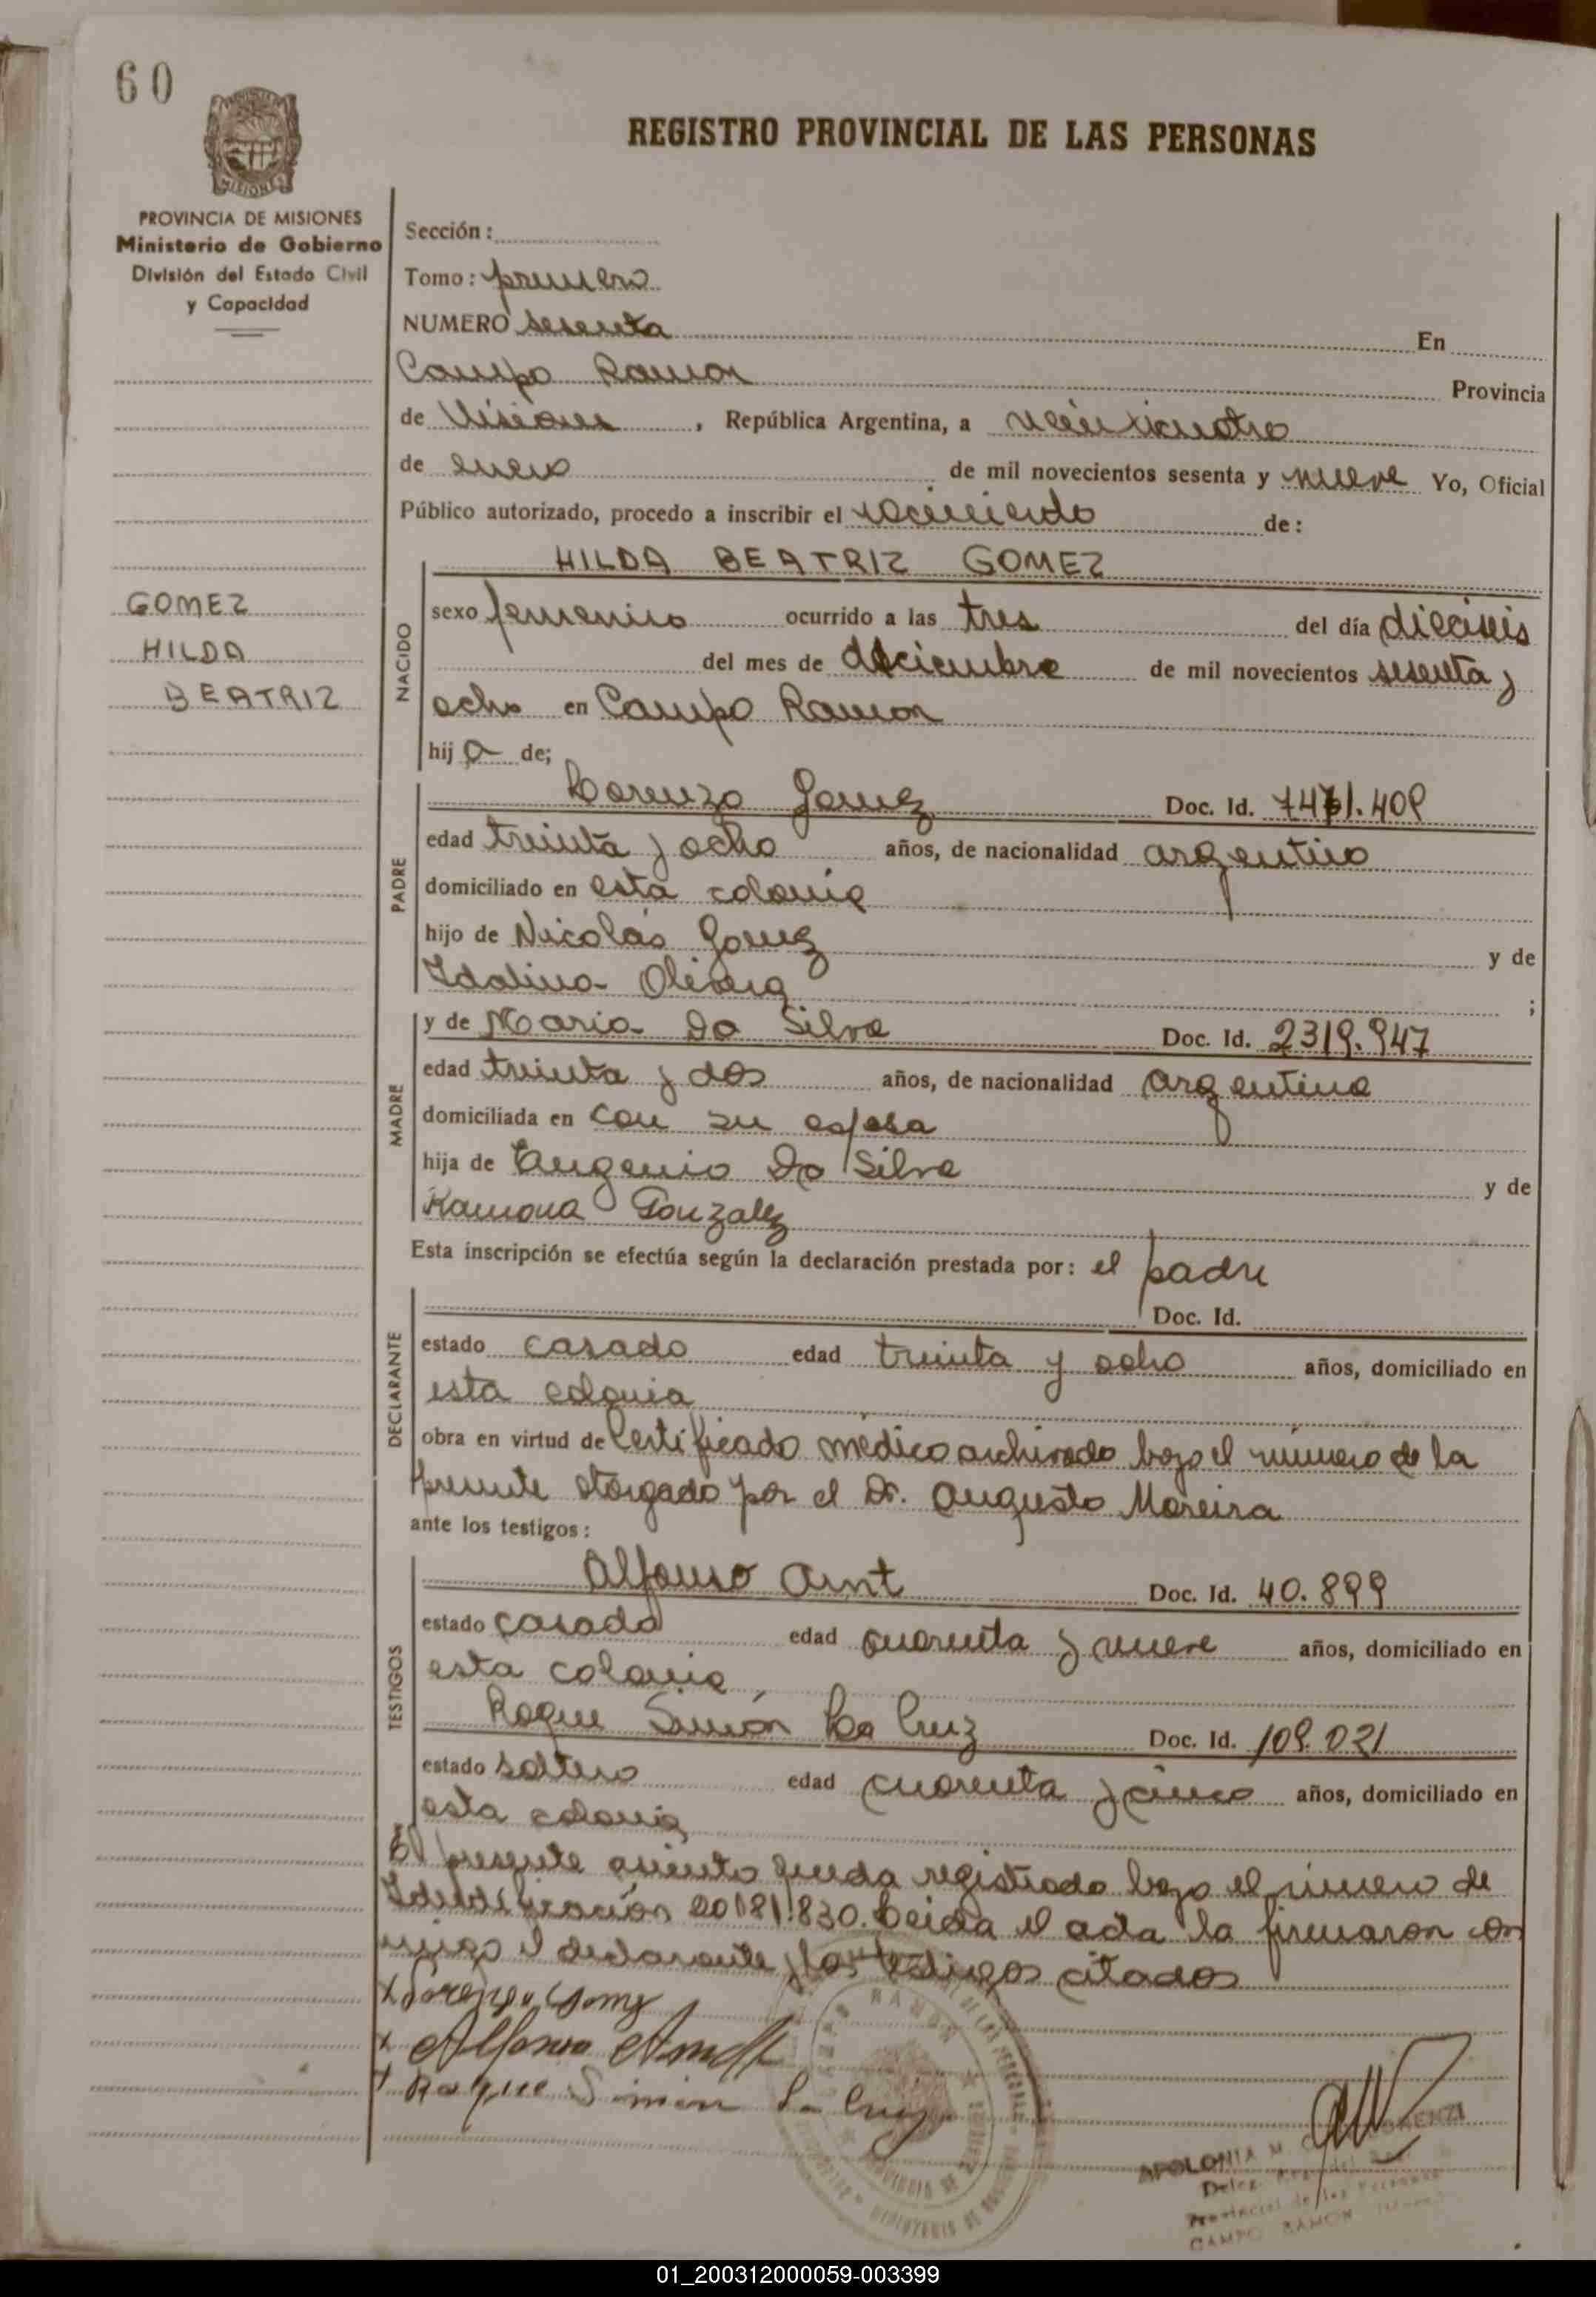 60
PROVINCIA DE MISIONES
Ministerio de Gobierno
División del Estado Civil
y Capacidad
REGISTRO PROVINCIAL DE LAS PERSONAS
Sección:
Tomo: primero
NUMERO sesenta En
Campo Ramon Provincia
de Misiones, República Argentina, a veinticuatro
de enero de mil novecientos sesenta y nueve Yo, Oficial
Público autorizado, procedo a inscribir el nacimiento de:
GOMEZ
HILDA
BEATRIZ
NACIDO
HILDA BEATRIZ GOMEZ
sexo femenino ocurrido a las tres del día dieciseis
del mes de diciembre de mil novecientos sesenta y
ocho en Campo Ramon
hij a de;
PADRE
Lorenzo Gomez Doc. Id. 7471.409
edad treinta y ocho años, de nacionalidad argentino
domiciliado en esta colonia
hijo de Nicolás Gomez y de
Idalina Olivera ;
MADRE
y de Maria Da Silva Doc. Id. 2319.947
edad treinta y dos años, de nacionalidad argentina
domiciliada en con su esposo
hija de Eugenio Da Silva y de
Ramona Gonzalez
Esta inscripción se efectúa según la declaración prestada por: el padre
DECLARANTE
Doc. Id.
estado casado edad treinta y ocho años, domiciliado en
esta colonia
obra en virtud de Certificado médico archivado bajo el número de la
presente otorgado por el Dr. Augusto Moreira
ante los testigos:
TESTIGOS
Alfonso Arnt Doc. Id. 40.899
estado casado edad cuarenta y nueve años, domiciliado en
esta colonia
Roque Simón La Cruz Doc. Id. 109.021
estado soltero edad cuarenta y cinco años, domiciliado en
esta colonia
El presente asiento queda registrado bajo el número de
Identificación 20.181.830. Leida el acta la firmaron con
migo el declarante y los testigos citados
x Lorenzo Gomez
x Alfonso Arndt
x Roque Simon La Cruz
APOLONIA M.
Provincial de las Personas
CAMPO RAMON
01_200312000059-003399